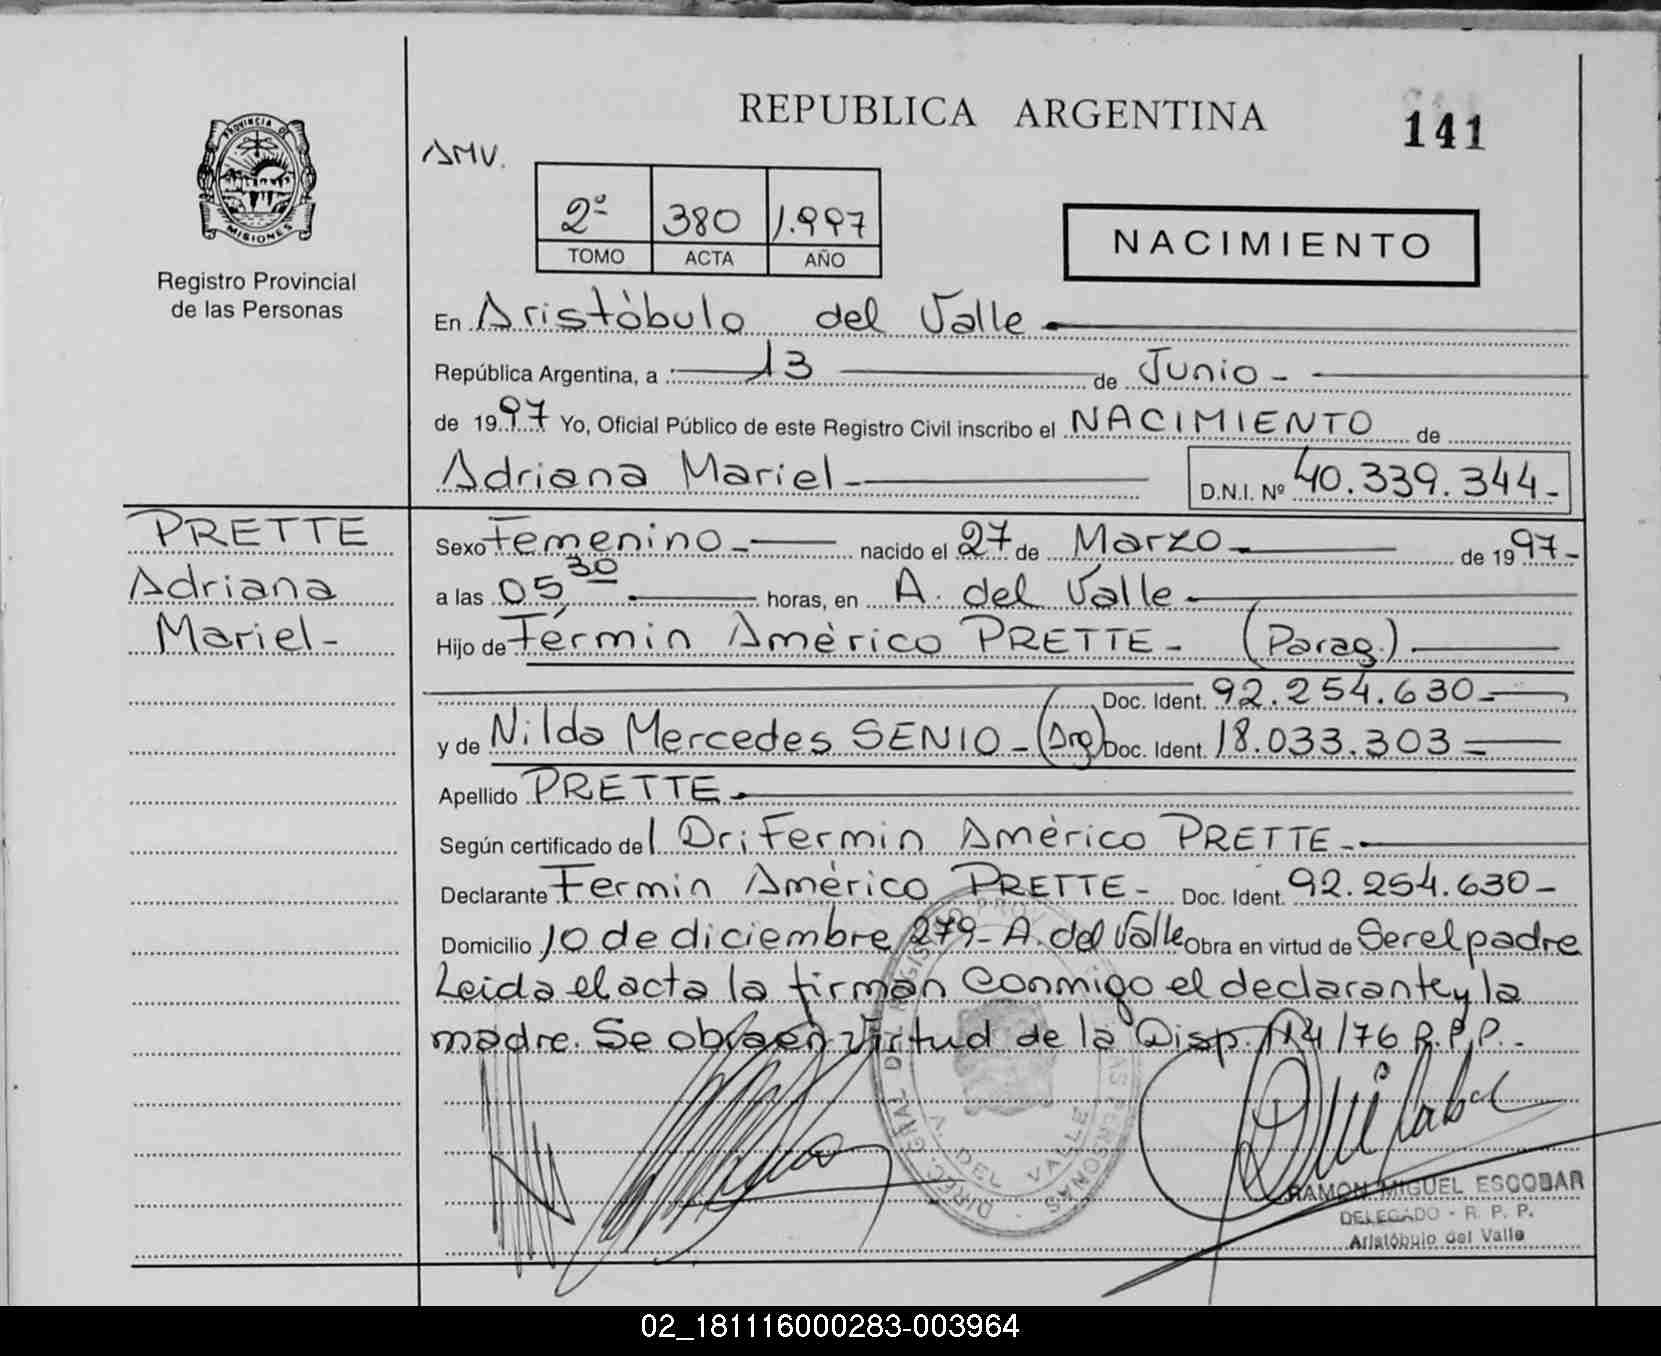 REPUBLICA ARGENTINA
141
AMV.
2º 380 1.997
TOMO ACTA AÑO
NACIMIENTO
PROVINCIA DE
MISIONES
Registro Provincial
de las Personas
En Aristòbulo del Valle
República Argentina, a 13 de Junio -
de 1997 Yo, Oficial Público de este Registro Civil inscribo el NACIMIENTO de
Adriana Mariel - D.N.I. Nº 40.339.344-
PRETTE
Adriana
Mariel -
Sexo Femenino - nacido el 27 de Marzo - de 1997-
a las 05 30 horas, en A. del Valle -
Hijo de Férmin Amèrico PRETTE - (Parag.)
Doc. Ident. 92.254.630-
y de Nilda Mercedes SENIO - (Arg) Doc. Ident. 18.033.303=
Apellido PRETTE -
Según certificado del Dr: Fermin Amèrico PRETTE -
Declarante Fermin Amèrico PRETTE - Doc. Ident. 92.254.630-
Domicilio 10 de diciembre 279- A. del Valle Obra en virtud de Ser el padre
Leida el acta la firman conmigo el declarante y la
madre. Se obra en virtud de la Disp. 114/76 R.P.P. -
DIREC. GRAL DEL REGISTRO PROV. LAS PERSONAS
A. DEL VALLE
RAMON MIGUEL ESCOBAR
DELEGADO - R. P. P.
Aristóbulo del Valle
02_181116000283-003964